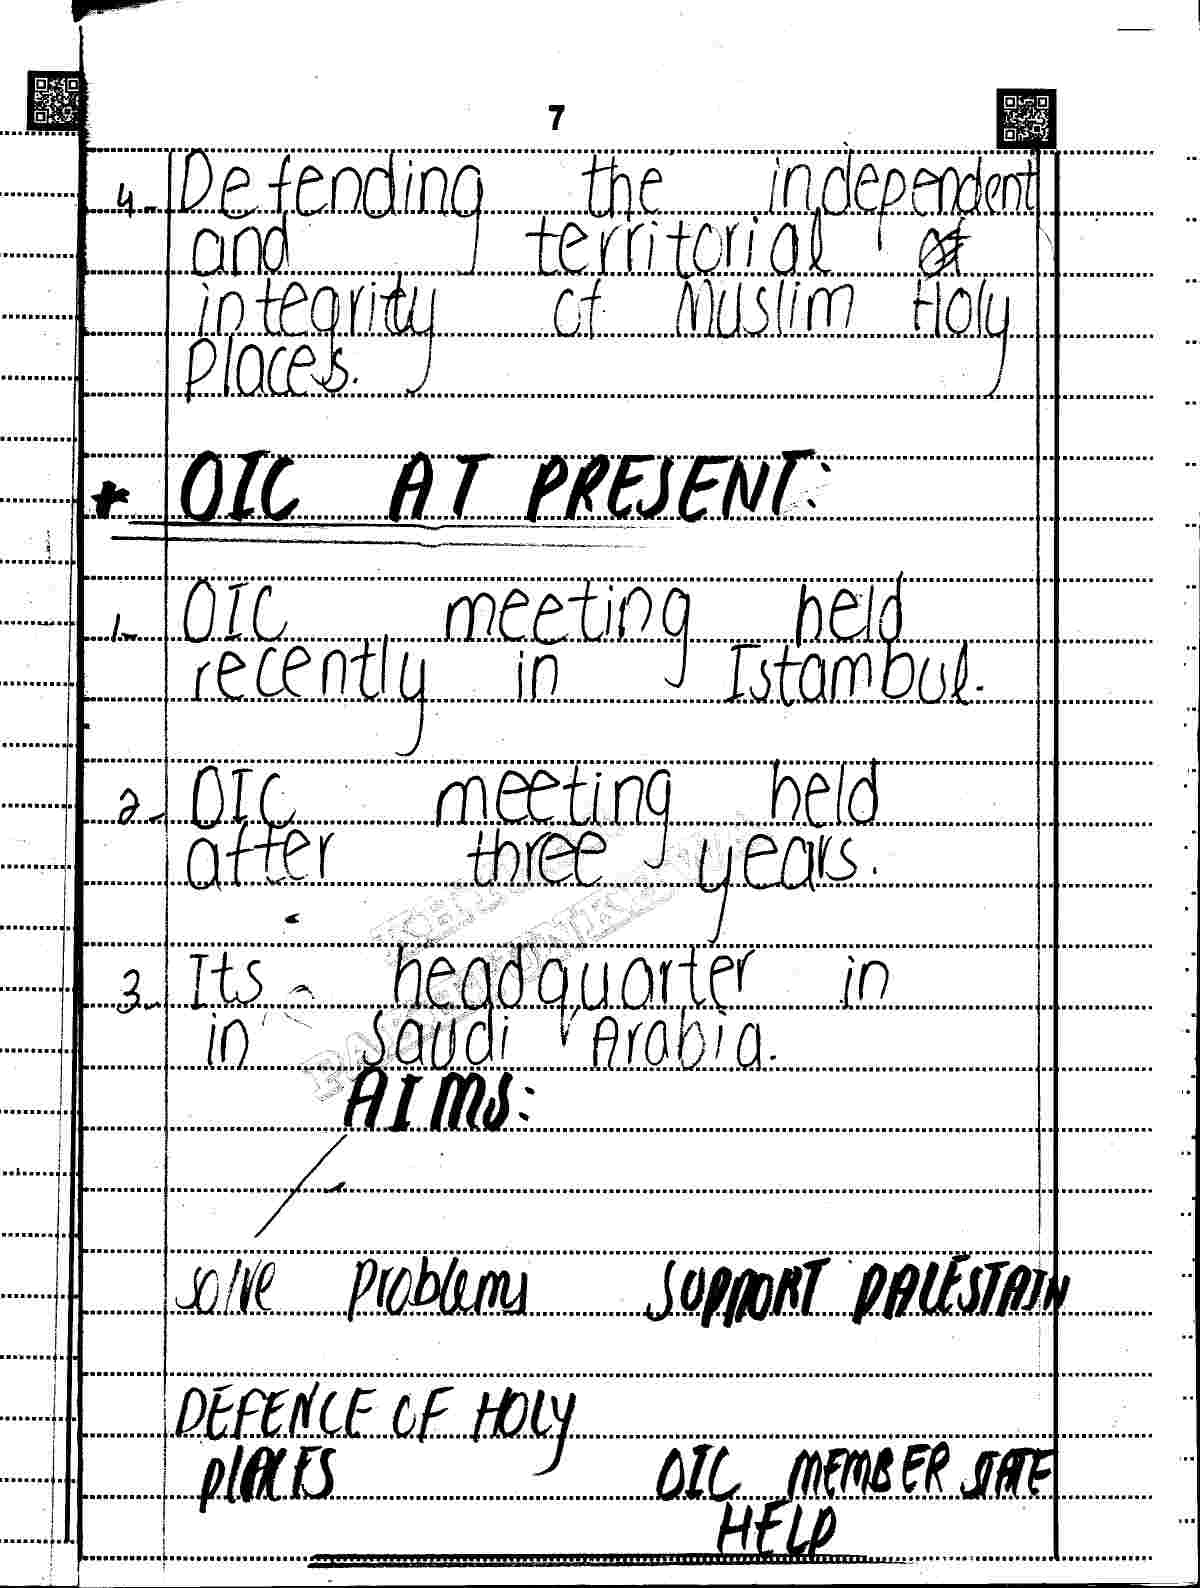 7
4- Defending the independent
and territorial
integrity of Muslim Holy
places.
* OIC AT PRESENT:
1- OIC meeting held
recently in Istambul.
2- OIC meeting held
after three years.
3- Its headquarter in
in Saudi Arabia.
AIMS:
solve problems SUPPORT PALESTAIN
DEFENCE OF HOLY
PLACES OIC MEMBER STATE
HELP